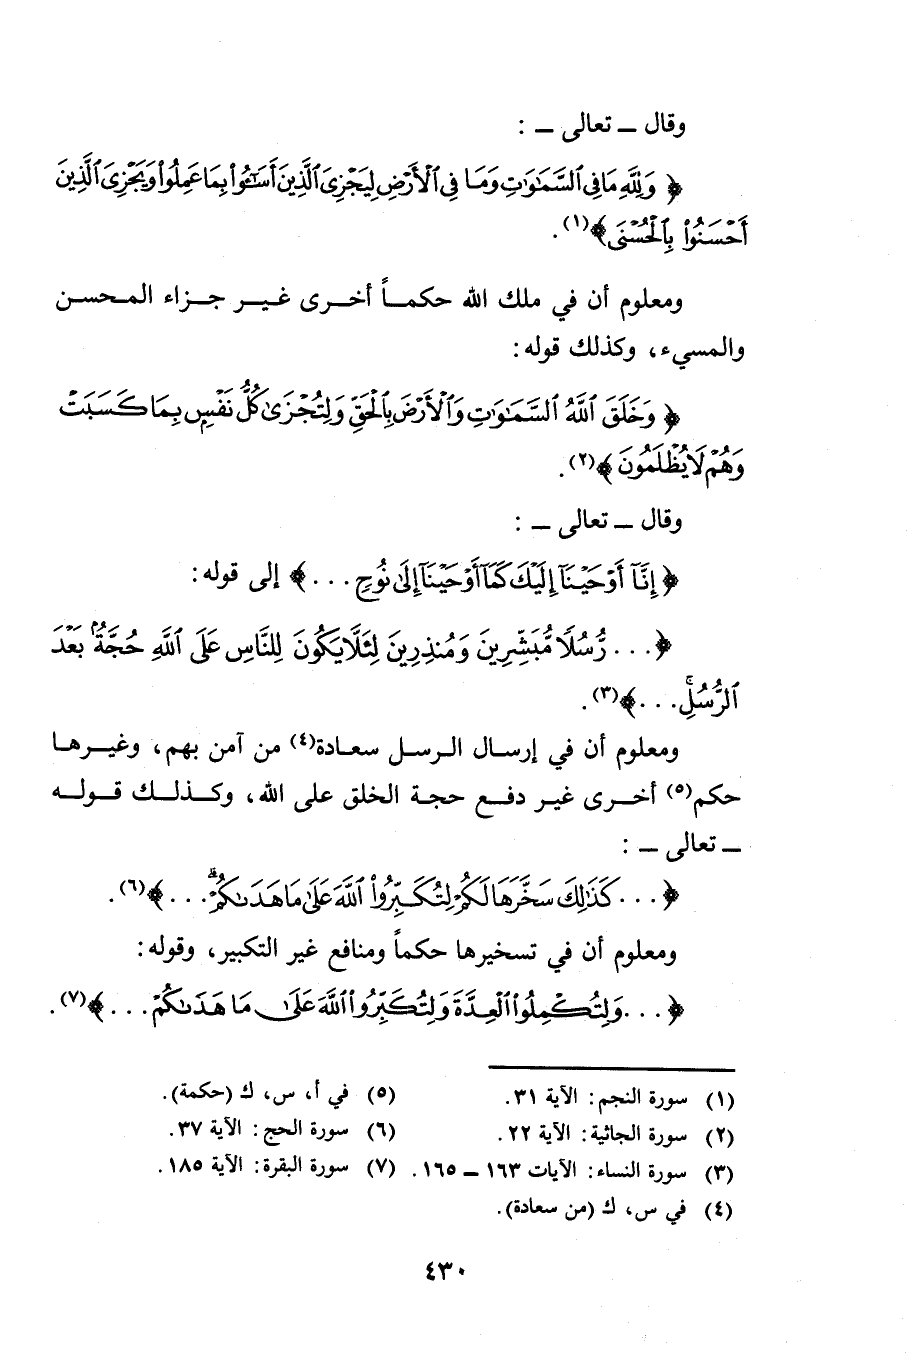 وقال ــ تعالى ــ :
﴿ وَلِلَّهِ مَا فِي ٱلسَّمَٰوَٰتِ وَمَا فِي ٱلْأَرْضِ لِيَجْزِيَ ٱلَّذِينَ أَسَٰٓـُٔوا۟ بِمَا عَمِلُوا۟ وَيَجْزِيَ ٱلَّذِينَ
أَحْسَنُوا۟ بِٱلْحُسْنَى ﴾(١).
ومعلوم أن في ملك الله حكمـاً أخـرى غيـر جـزاء المحسن
والمسيء، وكذلك قوله:
﴿ وَخَلَقَ ٱللَّهُ ٱلسَّمَٰوَٰتِ وَٱلْأَرْضَ بِٱلْحَقِّ وَلِتُجْزَىٰ كُلُّ نَفْسٍۭ بِمَا كَسَبَتْ
وَهُمْ لَا يُظْلَمُونَ ﴾(٢).
وقال ــ تعالى ــ :
﴿ إِنَّآ أَوْحَيْنَآ إِلَيْكَ كَمَآ أَوْحَيْنَآ إِلَىٰ نُوحٍ ... ﴾ إلى قوله:
﴿ ... رُّسُلًا مُّبَشِّرِينَ وَمُنذِرِينَ لِئَلَّا يَكُونَ لِلنَّاسِ عَلَى ٱللَّهِ حُجَّةٌۢ بَعْدَ
ٱلرُّسُلِۚ ... ﴾(٣).
ومعلوم أن في إرسال الرسل سعادة(٤) من آمن بهم، وغيرها
حكم(٥) أخرى غير دفع حجة الخلق على الله، وكذلك قوله
ــ تعالى ــ :
﴿ ... كَذَٰلِكَ سَخَّرَهَا لَكُمْ لِتُكَبِّرُوا۟ ٱللَّهَ عَلَىٰ مَا هَدَىٰكُمْۗ ... ﴾(٦).
ومعلوم أن في تسخيرها حكماً ومنافع غير التكبير، وقوله:
﴿ ... وَلِتُكْمِلُوا۟ ٱلْعِدَّةَ وَلِتُكَبِّرُوا۟ ٱللَّهَ عَلَىٰ مَا هَدَىٰكُمْ ... ﴾(٧).
(١) سورة النجم: الآية ٣١.
(٢) سورة الجاثية: الآية ٢٢.
(٣) سورة النساء: الآيات ١٦٣ ــ ١٦٥.
(٤) في س، ك (من سعادة).
(٥) في أ، س، ك (حكمة).
(٦) سورة الحج: الآية ٣٧.
(٧) سورة البقرة: الآية ١٨٥.
٤٣٠